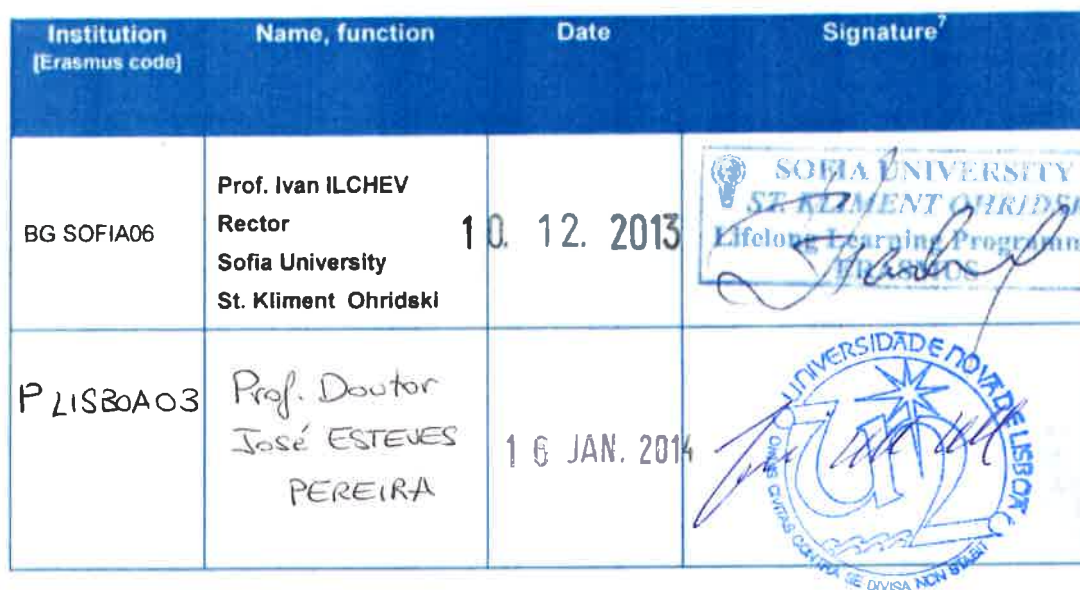 Institution
[Erasmus code]
Name, function
Date
Signature7
BG SOFIA06
Prof. Ivan ILCHEV
Rector
Sofia University
St. Kliment Ohridski
10. 12. 2013
SOFIA UNIVERSITY
ST. KLIMENT OHRIDSKI
Lifelong Learning Programm
ERASMUS
P LISBOA03
Prof. Doutor
José ESTEVES
PEREIRA
16 JAN. 2014
UNIVERSIDADE NOVA DE LISBOA
OMNIS CIVITAS CONTRA SE DIVISA NON STABIT